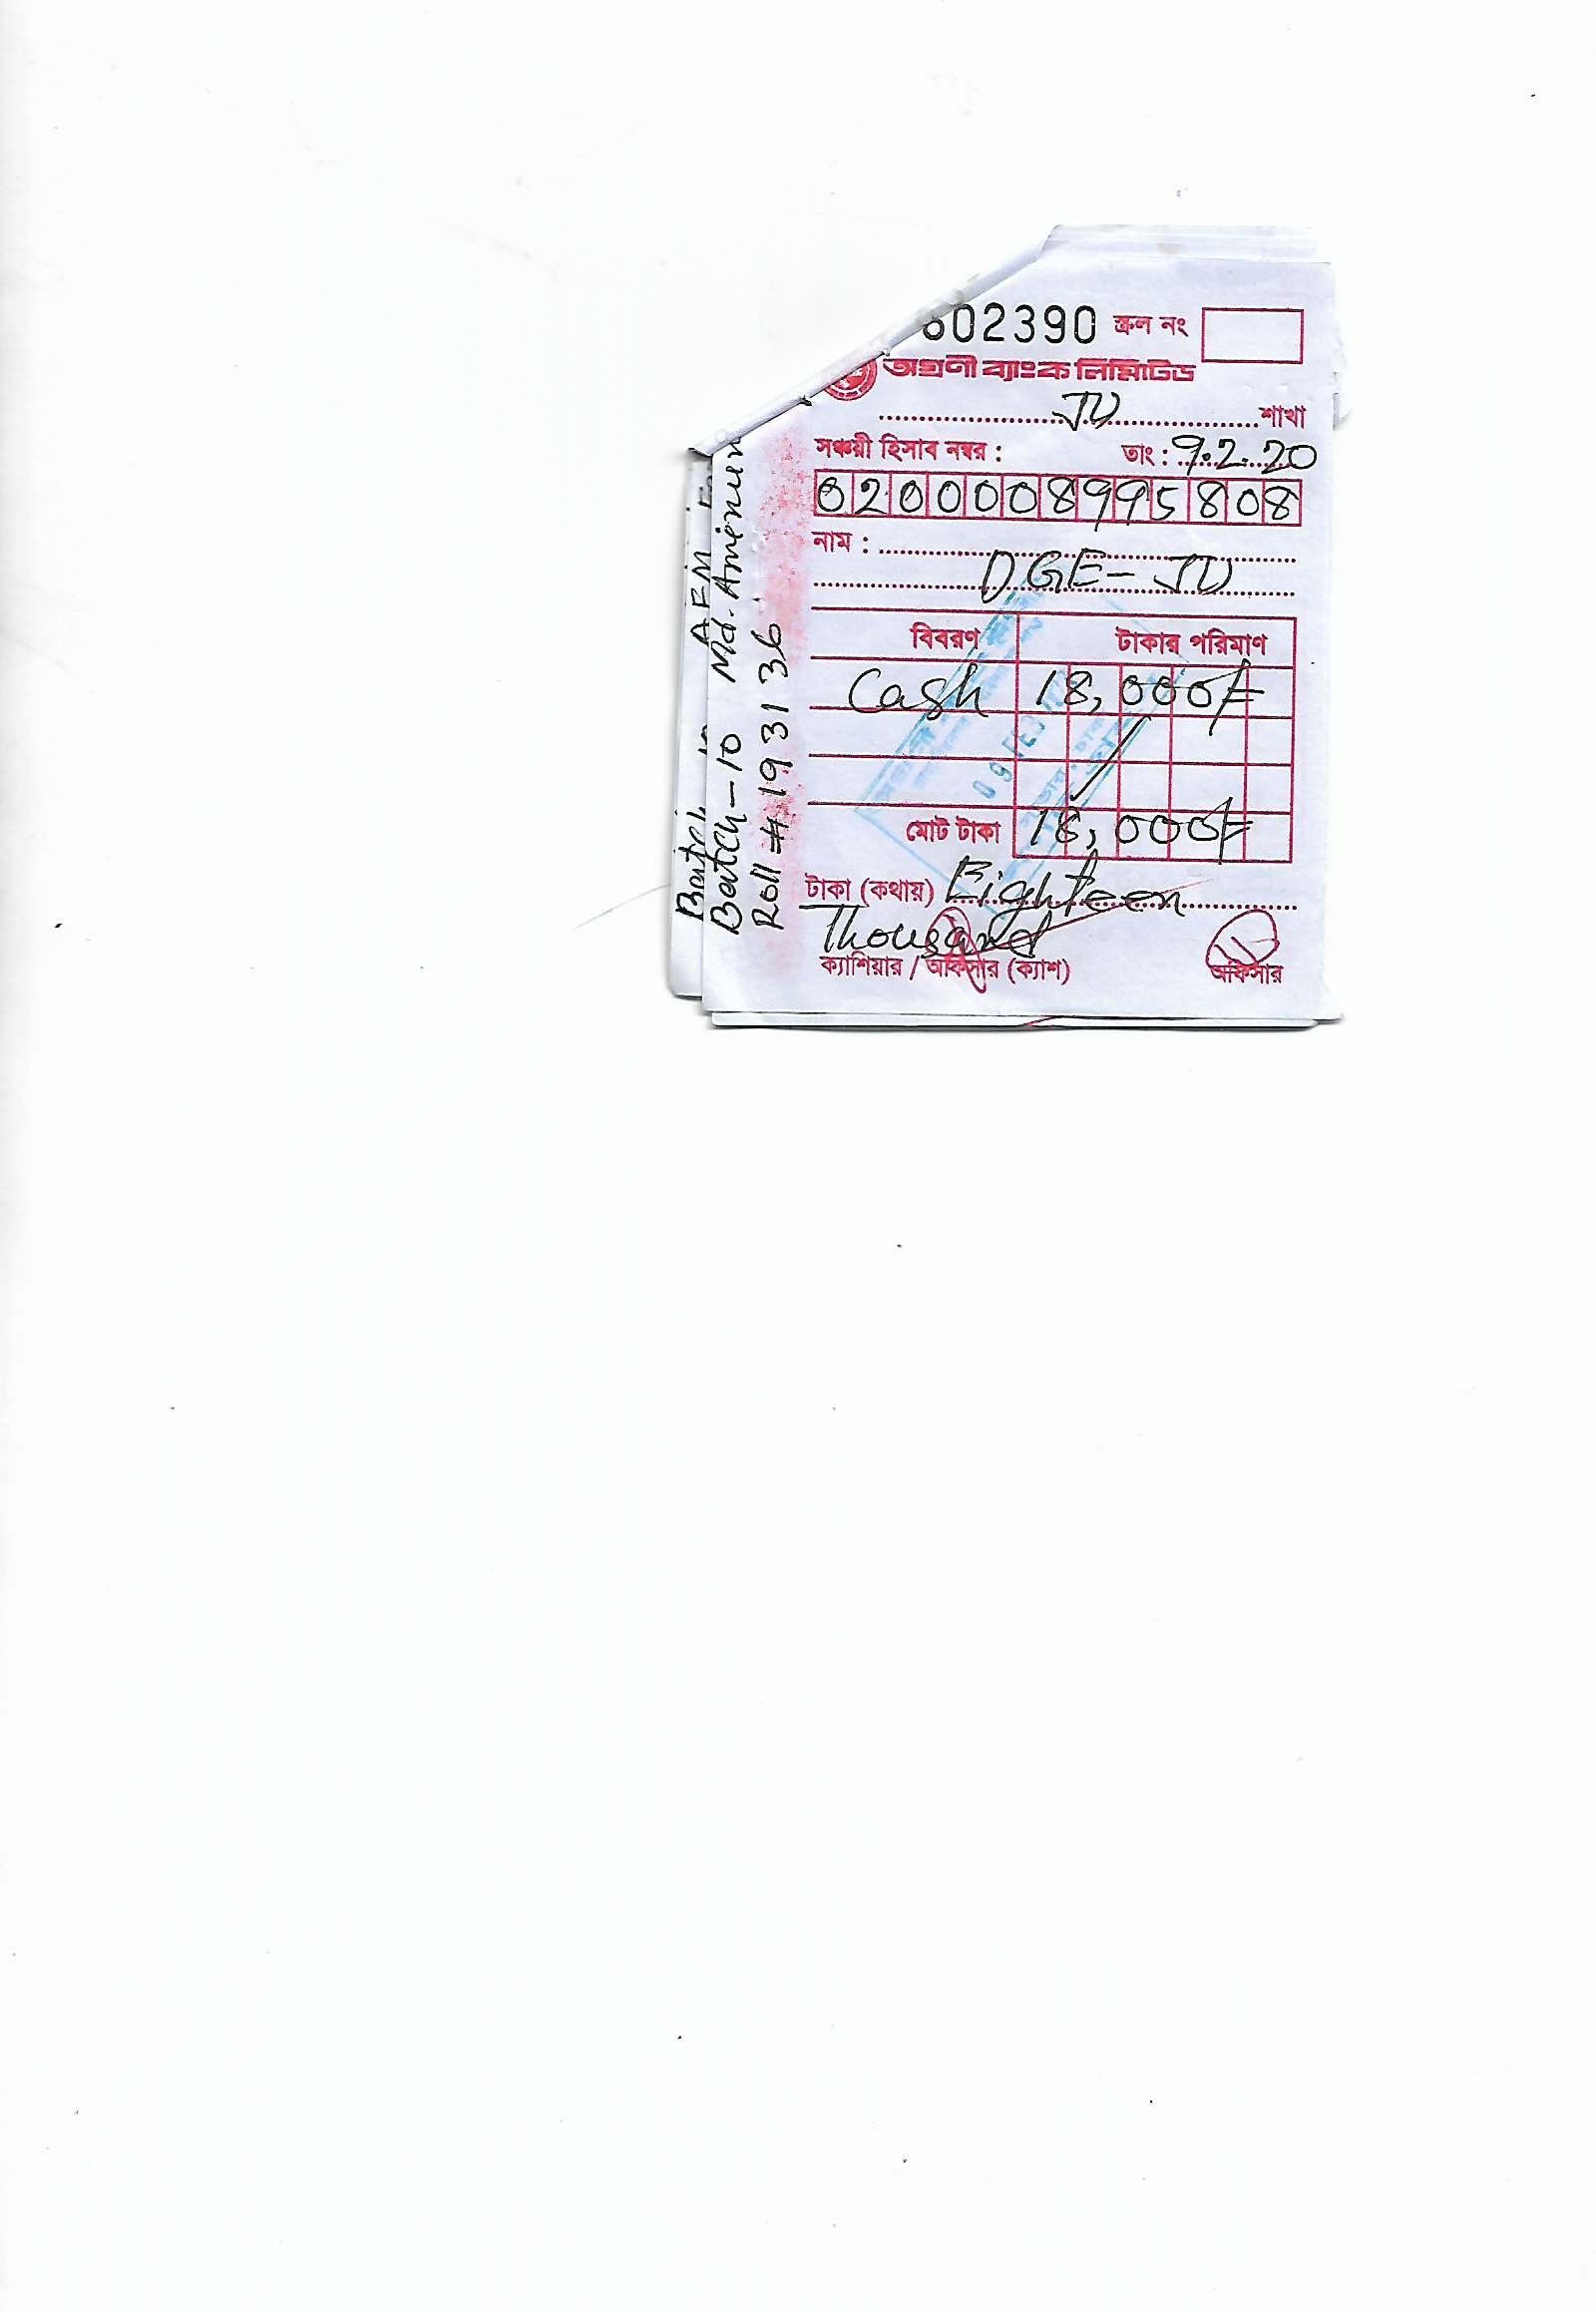 02390 স্ক্রল নং
অগ্রণী ব্যাংক লিমিটেড
JU শাখা
সঞ্চয়ী হিসাব নম্বর : তাং : 9.2.20
0200008995808
নাম :
DGE-JU
বিবরণ টাকার পরিমাণ
Cash 18,000/=
মোট টাকা 18,000/=
টাকা (কথায়) Eighteen
Thousand
ক্যাশিয়ার / অফিসার (ক্যাশ) অফিসার
Batch-10 Md. Aminur
Roll # 193136
09 FEB